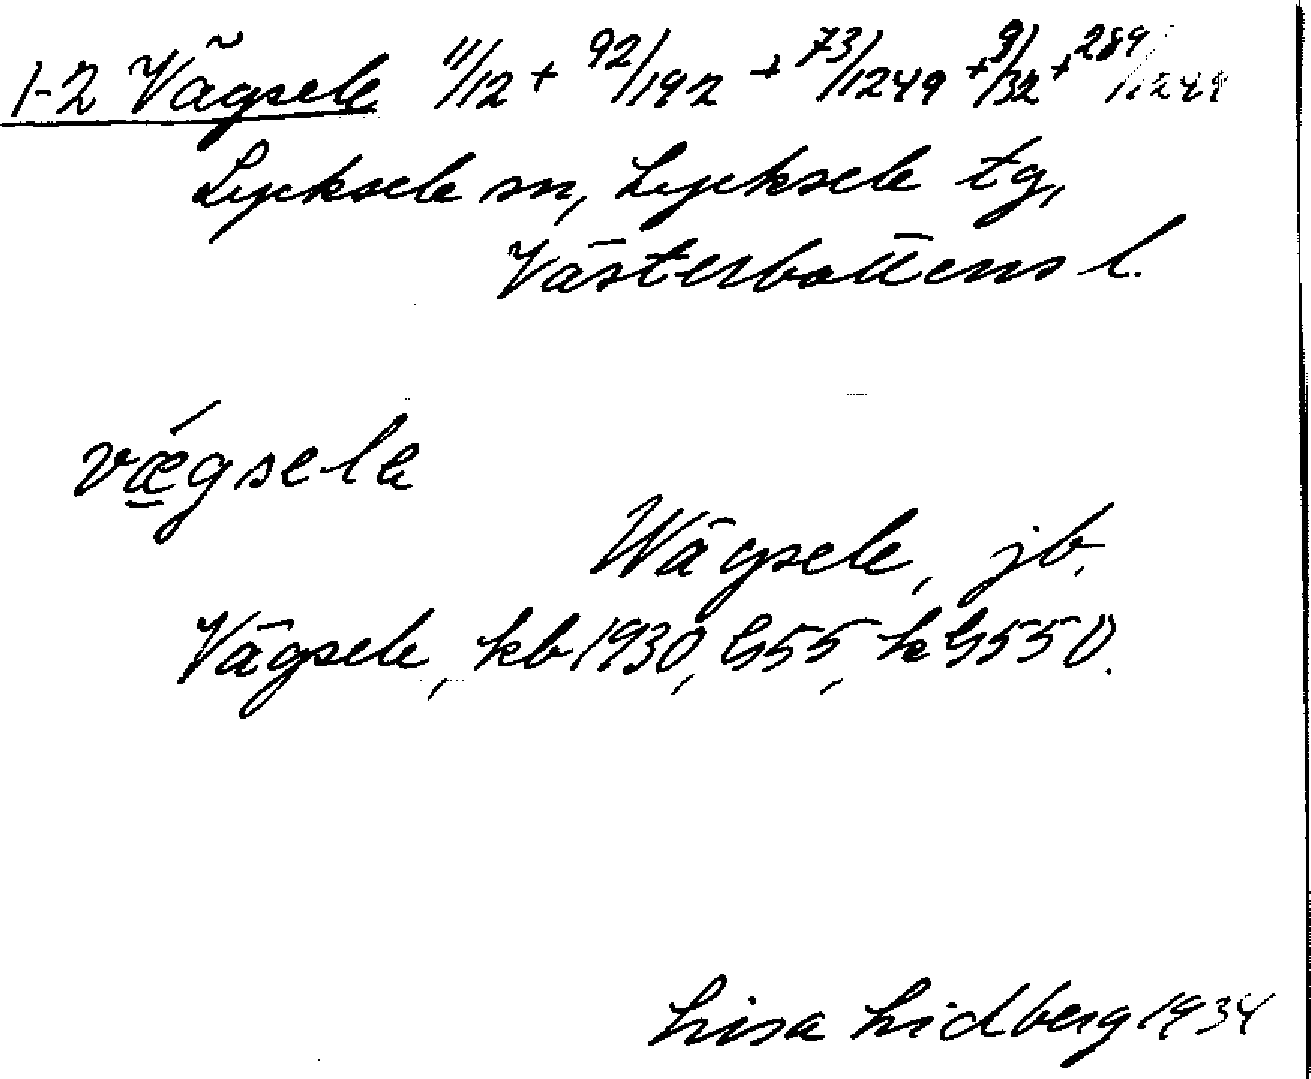 1-2 Vägsele 11/12 + 92/192 + 73/1249 + 9/32 + 289/1249
Lycksele sn, Lycksele tg,
Västerbottens l.
vǽgsele
Wägsele, jb.
Vägsele, kb 1930, GS55, kGS55 D.
Lisa Lidberg 1934